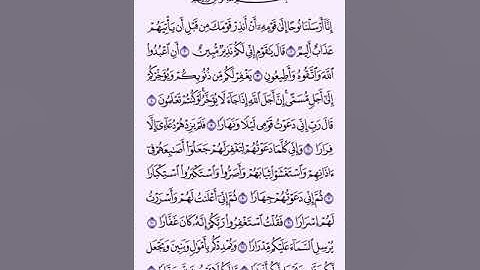 إِنَّا أَرْسَلْنَا نُوحًا إِلَىٰ قَوْمِهِ أَنْ أَنذِرْ قَوْمَكَ مِن قَبْلِ أَن يَأْتِيَهُمْ
عَذَابٌ أَلِيمٌ قَالَ يَٰقَوْمِ إِنِّي لَكُمْ نَذِيرٌ مُّبِينٌ أَنِ ٱعْبُدُوا۟
ٱللَّهَ وَٱتَّقُوهُ وَأَطِيعُونِ يَغْفِرْ لَكُم مِّن ذُنُوبِكُمْ وَيُؤَخِّرْكُمْ
إِلَىٰ أَجَلٍ مُّسَمًّى إِنَّ أَجَلَ ٱللَّهِ إِذَا جَآءَ لَا يُؤَخَّرُ لَوْ كُنتُمْ تَعْلَمُونَ
قَالَ رَبِّ إِنِّي دَعَوْتُ قَوْمِي لَيْلًا وَنَهَارًا فَلَمْ يَزِدْهُمْ دُعَآءِيٓ إِلَّا
فِرَارًا وَإِنِّي كُلَّمَا دَعَوْتُهُمْ لِتَغْفِرَ لَهُمْ جَعَلُوٓا۟ أَصَٰبِعَهُمْ فِيٓ
ءَاذَانِهِمْ وَٱسْتَغْشَوْا۟ ثِيَابَهُمْ وَأَصَرُّوا۟ وَٱسْتَكْبَرُوا۟ ٱسْتِكْبَارًا
ثُمَّ إِنِّي دَعَوْتُهُمْ جِهَارًا ثُمَّ إِنِّيٓ أَعْلَنتُ لَهُمْ وَأَسْرَرْتُ
لَهُمْ إِسْرَارًا فَقُلْتُ ٱسْتَغْفِرُوا۟ رَبَّكُمْ إِنَّهُۥ كَانَ غَفَّارًا
يُرْسِلِ ٱلسَّمَآءَ عَلَيْكُم مِّدْرَارًا وَيُمْدِدْكُم بِأَمْوَٰلٍ وَبَنِينَ وَيَجْعَل